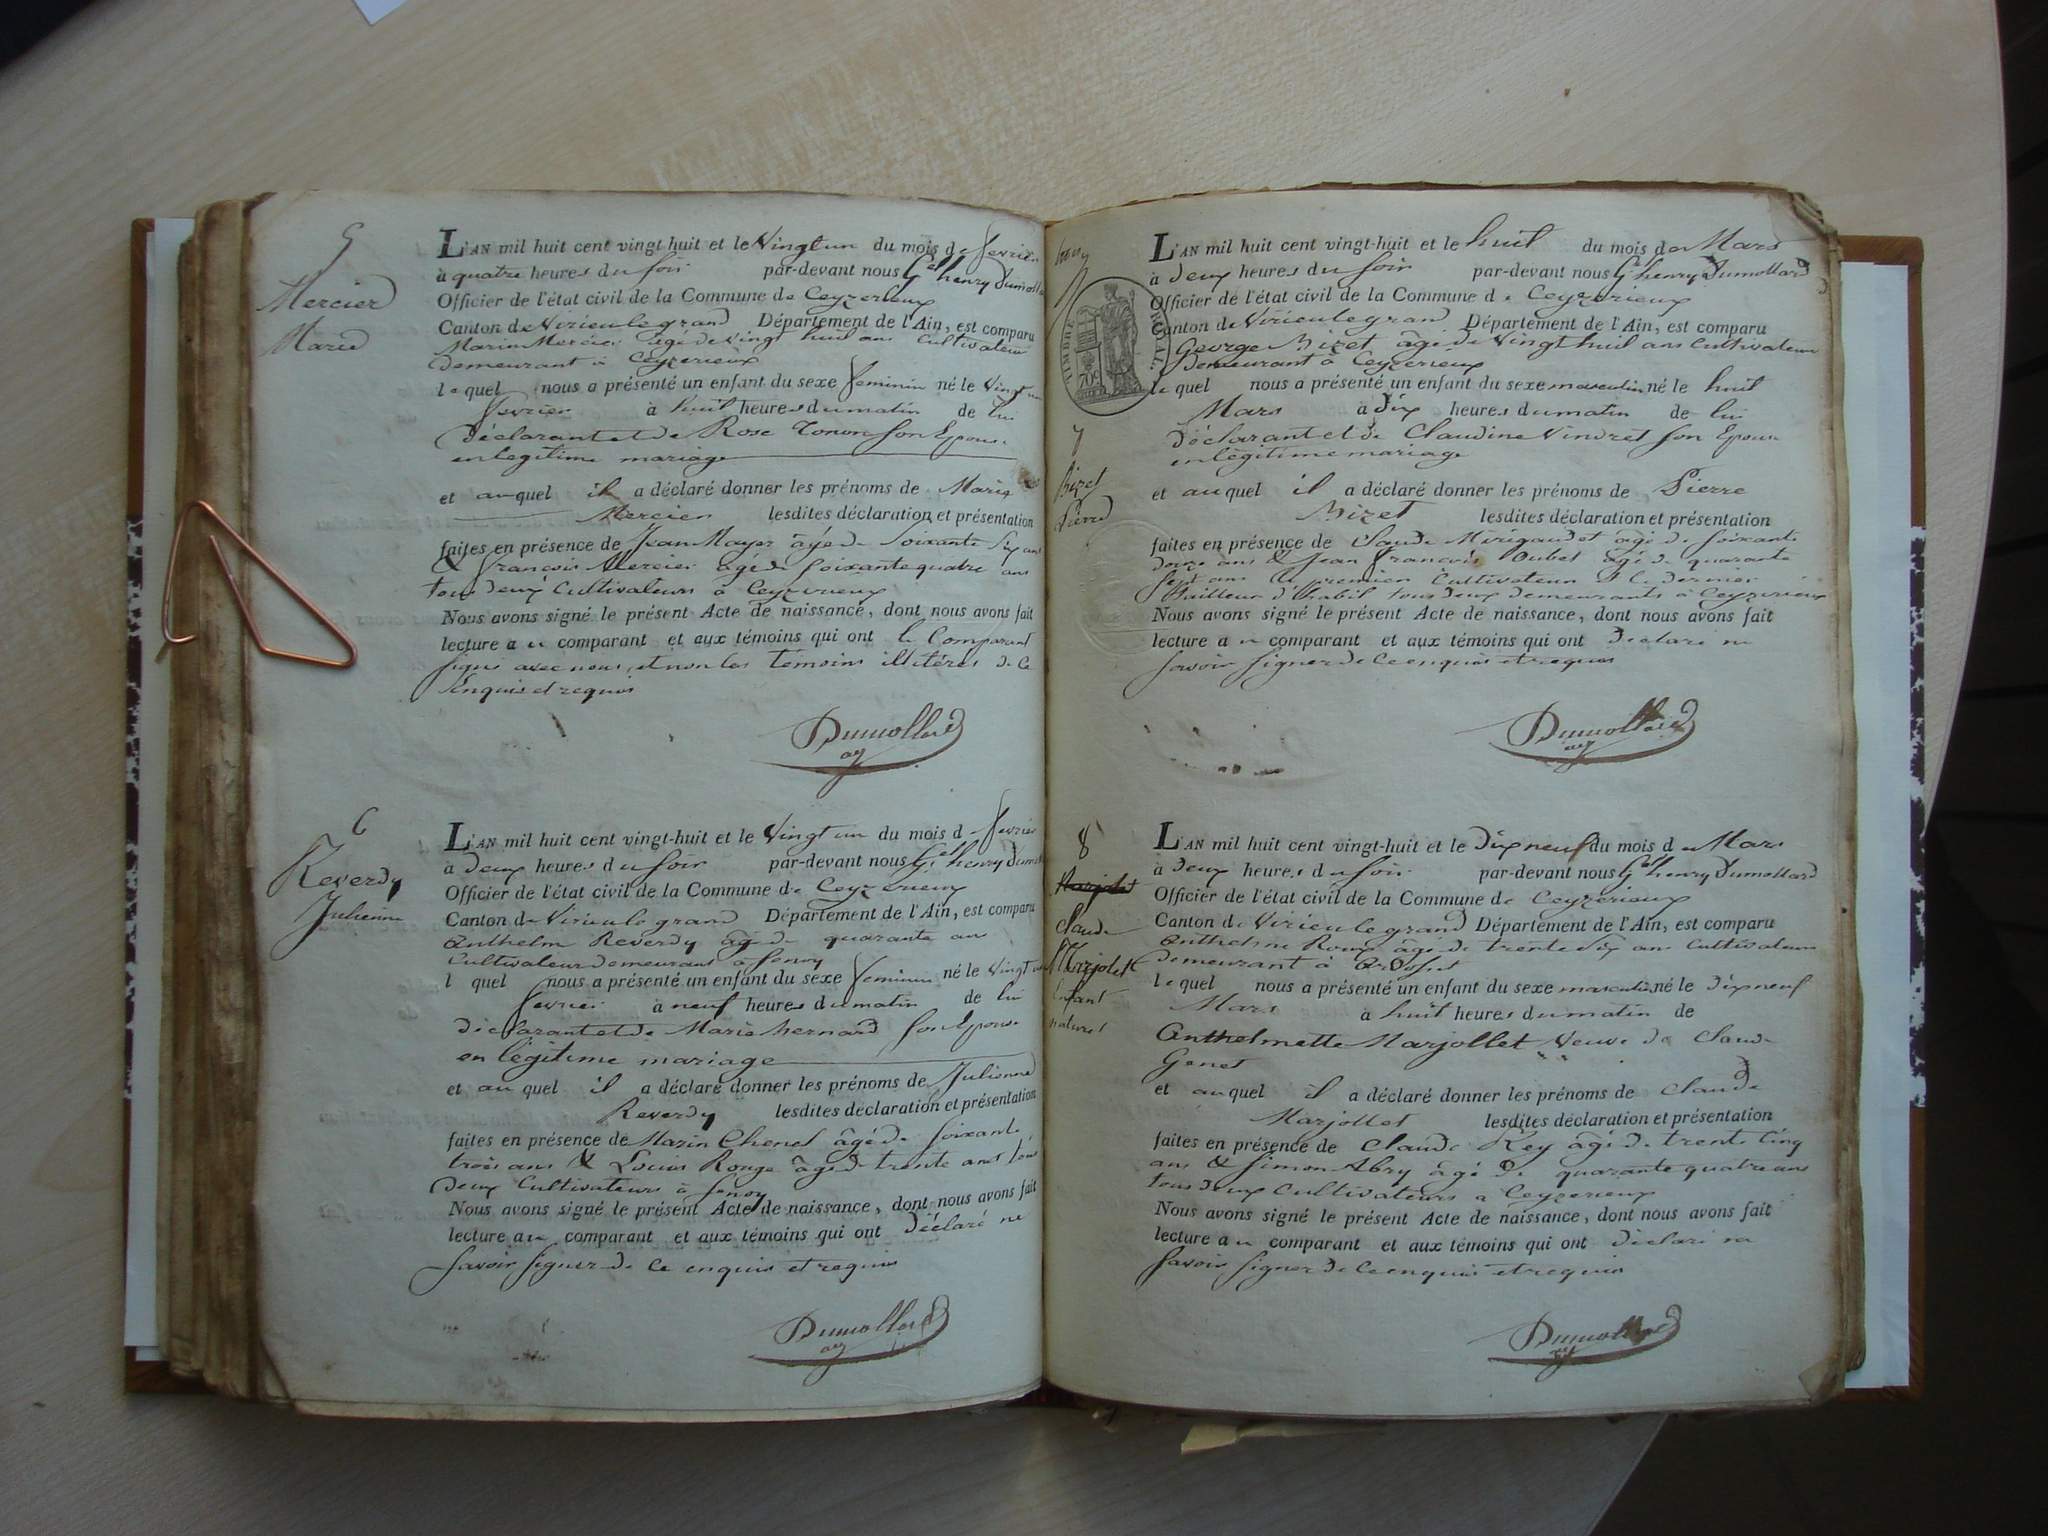 5
Mercier
Marie
L'AN mil huit cent vingt huit et le Vingt un du mois de fevrier
à quatre heures du soir par-devant nous Gel henry Dumollard
Officier de l'état civil de la Commune de Ceyzerieux
Canton de Virieu le grand Département de l'Ain, est comparu
Marin Mercier âgé de vingt huit ans Cultivateur
demeurant à Ceyzerieux
lequel nous a présenté un enfant du sexe feminin né le Vingt un
fevrier à huit heures du matin de lui
déclarant et de Rose Tonon son Epouse
en legitime mariage
et auquel il a déclaré donner les prénoms de Marie
Mercier lesdites déclaration et présentation
faites en présence de Jean Mayer âgé de Soixante Six ans
& francois Mercier âgé de soixante quatre ans
tous deux Cultivateurs à Ceyzerieux
Nous avons signé le présent Acte de naissance, dont nous avons fait
lecture au comparant et aux témoins qui ont le Comparant
signé avec nous, et non les témoins illitérés de ce
Enquis et requis
Dumollard
6
Reverdy
Julienne
L'AN mil huit cent vingt-huit et le Vingt un du mois d fevrier
à deux heures du soir par-devant nous Gel henry Dumollard
Officier de l'état civil de la Commune de Ceyzerieux
Canton de Virieu le grand Département de l'Ain, est comparu
Anthelme Reverdy âgé de quarante ans
Cultivateur demeurant à Senoy
l quel nous a présenté un enfant du sexe feminin né le Vingt un
fevrier à neuf heures du matin de lui
déclarant et de Marie Bernard son Epouse
en légitime mariage
et au quel il a déclaré donner les prénoms de Julienne
Reverdy lesdites déclaration et présentation
faites en présence de Marin Chenel âgé de soixante
trois ans & Louis Rouge âgé de trente ans tous
deux Cultivateurs à Senoy
Nous avons signé le présent Acte de naissance, dont nous avons fait
lecture au comparant et aux témoins qui ont déclaré ne
savoir signer de ce enquis et requis
Dumollard
TIMBRE ROYAL
70c
7
Bizet
Pierre
L'AN mil huit cent vingt-huit et le huit du mois de Mars
à deux heures du soir par-devant nous Gel henry Dumollard
Officier de l'état civil de la Commune de Ceyzerieux
Canton de Virieu le grand Département de l'Ain, est comparu
George Bizet âgé de Vingt huit ans Cultivateur
demeurant à Ceyzerieux
lequel nous a présenté un enfant du sexe masculin né le huit
Mars à dix heures du matin de lui
déclarant et de Claudine Vindret son Epouse
en légitime mariage
et auquel il a déclaré donner les prénoms de Pierre
Bizet lesdites déclaration et présentation
faites en présence de Claude Mirigaudet âgé de soixante
douze ans & Jean francois Oubet âgé de quarante
sept ans le premier Cultivateur & le dernier
tailleur d'habil tous deux demeurants à Ceyzerieux
Nous avons signé le présent Acte de naissance, dont nous avons fait
lecture au comparant et aux témoins qui ont déclaré ne
savoir signer de ce enquis et requis
Dumollard
8
Claude
Marjolet
Enfant
naturel
L'AN mil huit cent vingt-huit et le Dix neuf du mois de Mars
à deux heures du soir par-devant nous Gel henry Dumollard
Officier de l'état civil de la Commune de Ceyzerieux
Canton de Virieu le grand Département de l'Ain, est comparu
Anthelme Roux âgé de trente dix ans Cultivateur
demeurant à Ardosset
lequel nous a présenté un enfant du sexe masculin né le dix neuf
Mars à huit heures du matin de
Anthelmette Marjollet Veuve de Claude
Genet
et auquel il a déclaré donner les prénoms de Claude
Marjollet lesdites déclaration et présentation
faites en présence de Claude Rey âgé de trente Cinq
ans & Simon Abry âgé de quarante quatre ans
tous deux Cultivateurs à Ceyzerieux
Nous avons signé le présent Acte de naissance, dont nous avons fait
lecture au comparant et aux témoins qui ont déclaré ne
savoir signer de ce enquis et requis
Dumollard